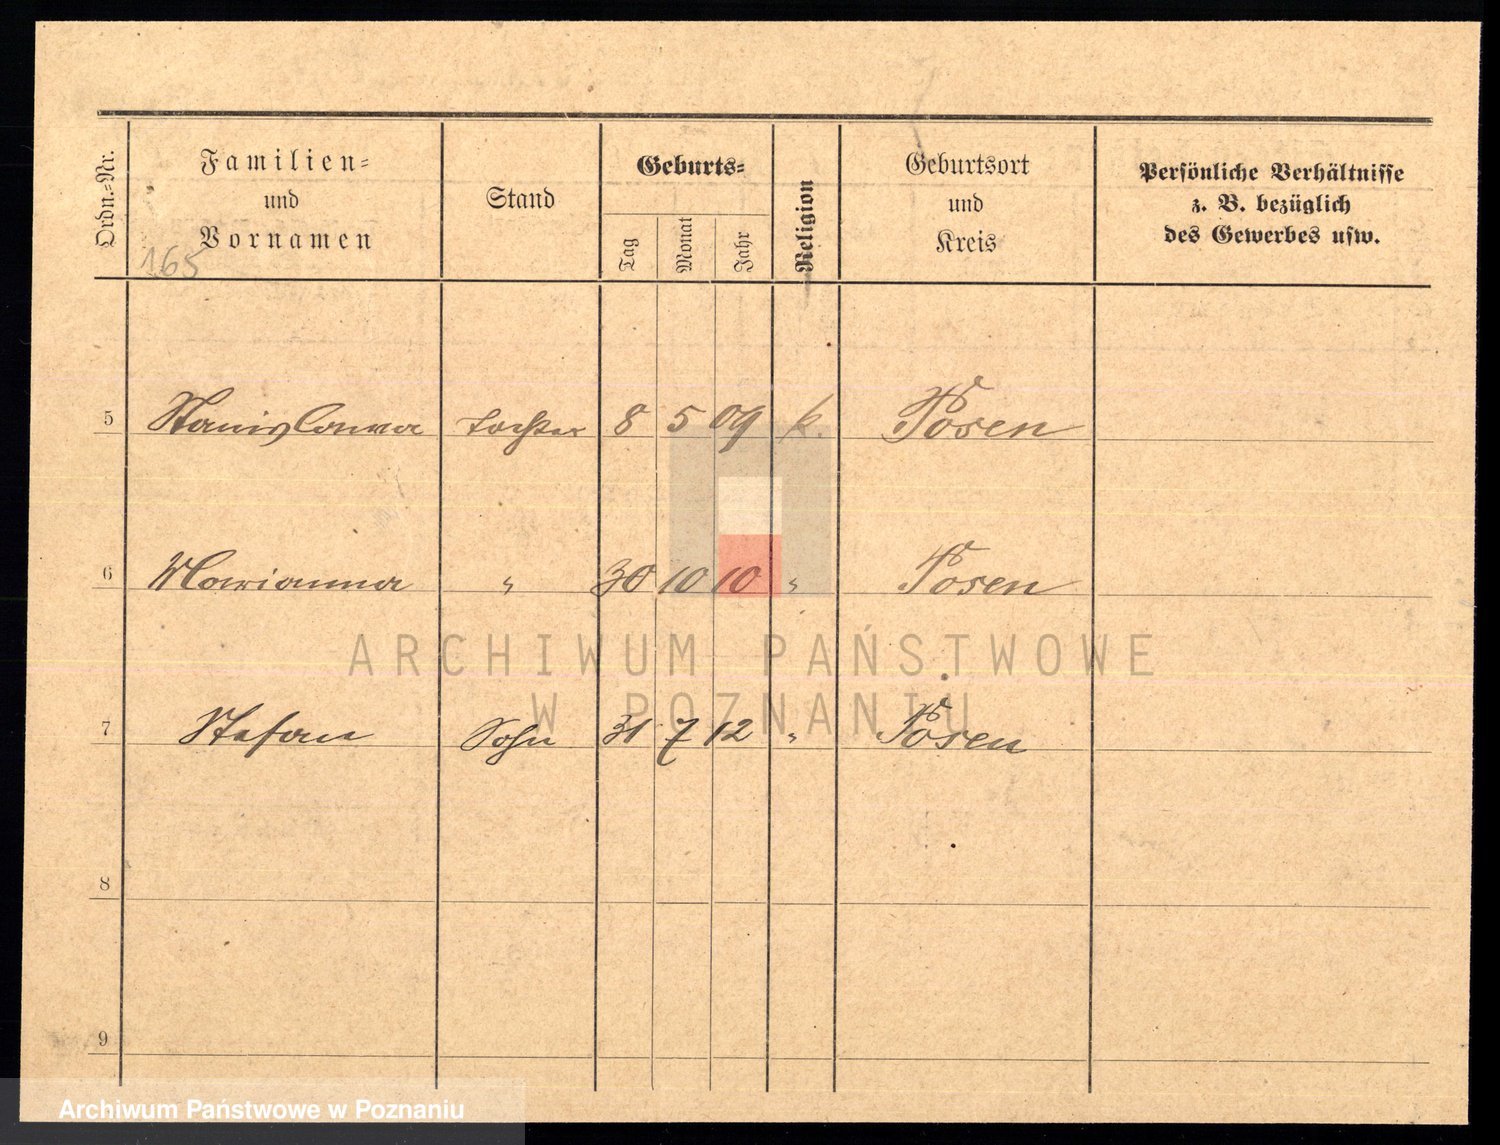 Ordn.-Nr.
Familien-
und
Vornamen
165
Stand
Geburts-
Tag
Monat
Jahr
Religion
Geburtsort
und
Kreis
Persönliche Verhältnisse
z. B. bezüglich
des Gewerbes usw.
5 Stanislawa Tochter 8 5 09 k. Posen
6 Marianna " 30 10 10 " Posen
ARCHIWUM PAŃSTWOWE
W POZNANIU
7 Stefan Sohn 31 7 12 " Posen
8
9
Archiwum Państwowe w Poznaniu